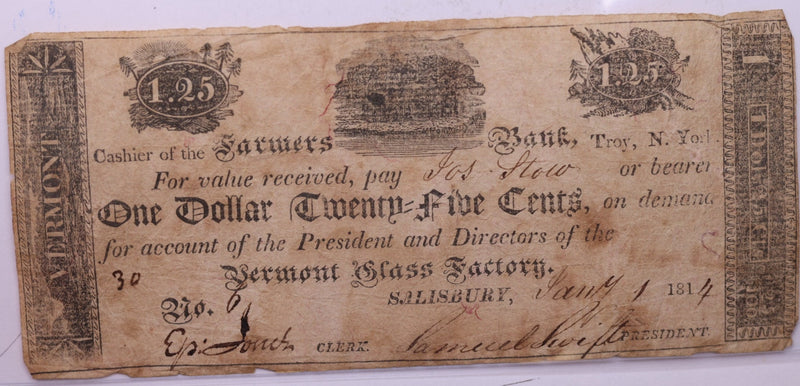 1.25 1.25
VERMONT
Cashier of the Farmers Bank, Troy, N. York
For value received, pay Jos Stow or bearer
One Dollar Twenty-Five Cents, on demand
for account of the President and Directors of the
Vermont Glass Factory.
30
No. 6
SALISBURY, Jany 1 1814
Ep: Jones CLERK. Samuel Swift PRESIDENT.